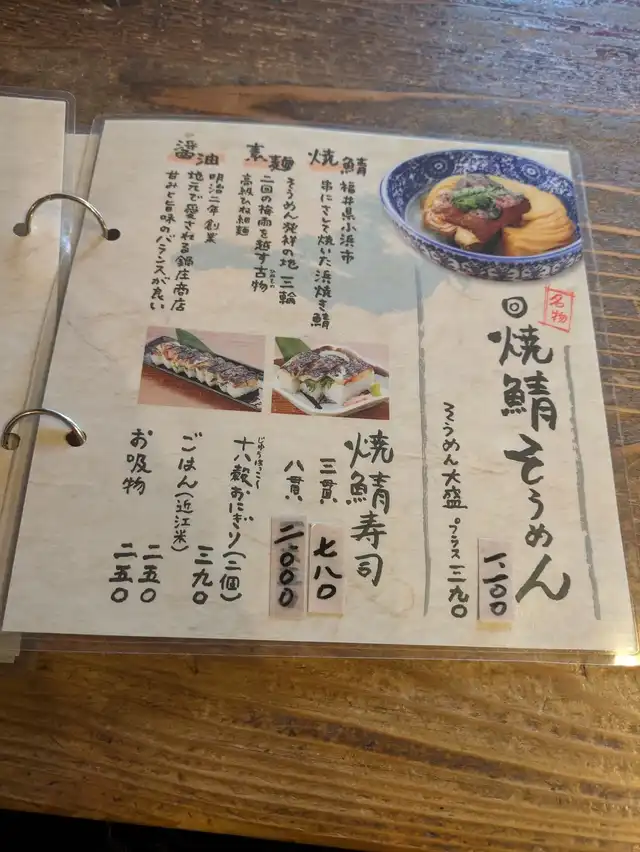 名物
焼鯖そうめん
一.一〇〇
そうめん大盛 プラス三九〇
焼鯖
福井県小浜市
串にさして焼いた浜焼き鯖
素麺
そうめん発祥の地 三輪
二回の梅雨を越す古物
ひねもの
高級ひね細麺
醤油
明治二年創業
地元で愛される鍋庄商店
甘みと旨味のバランスが良い
焼鯖寿司
三貫 七八〇
八貫 二.〇〇〇
じゅうはっこく
十八穀おにぎり(二個)
三九〇
ごはん(近江米) 二五〇
お吸物 二五〇